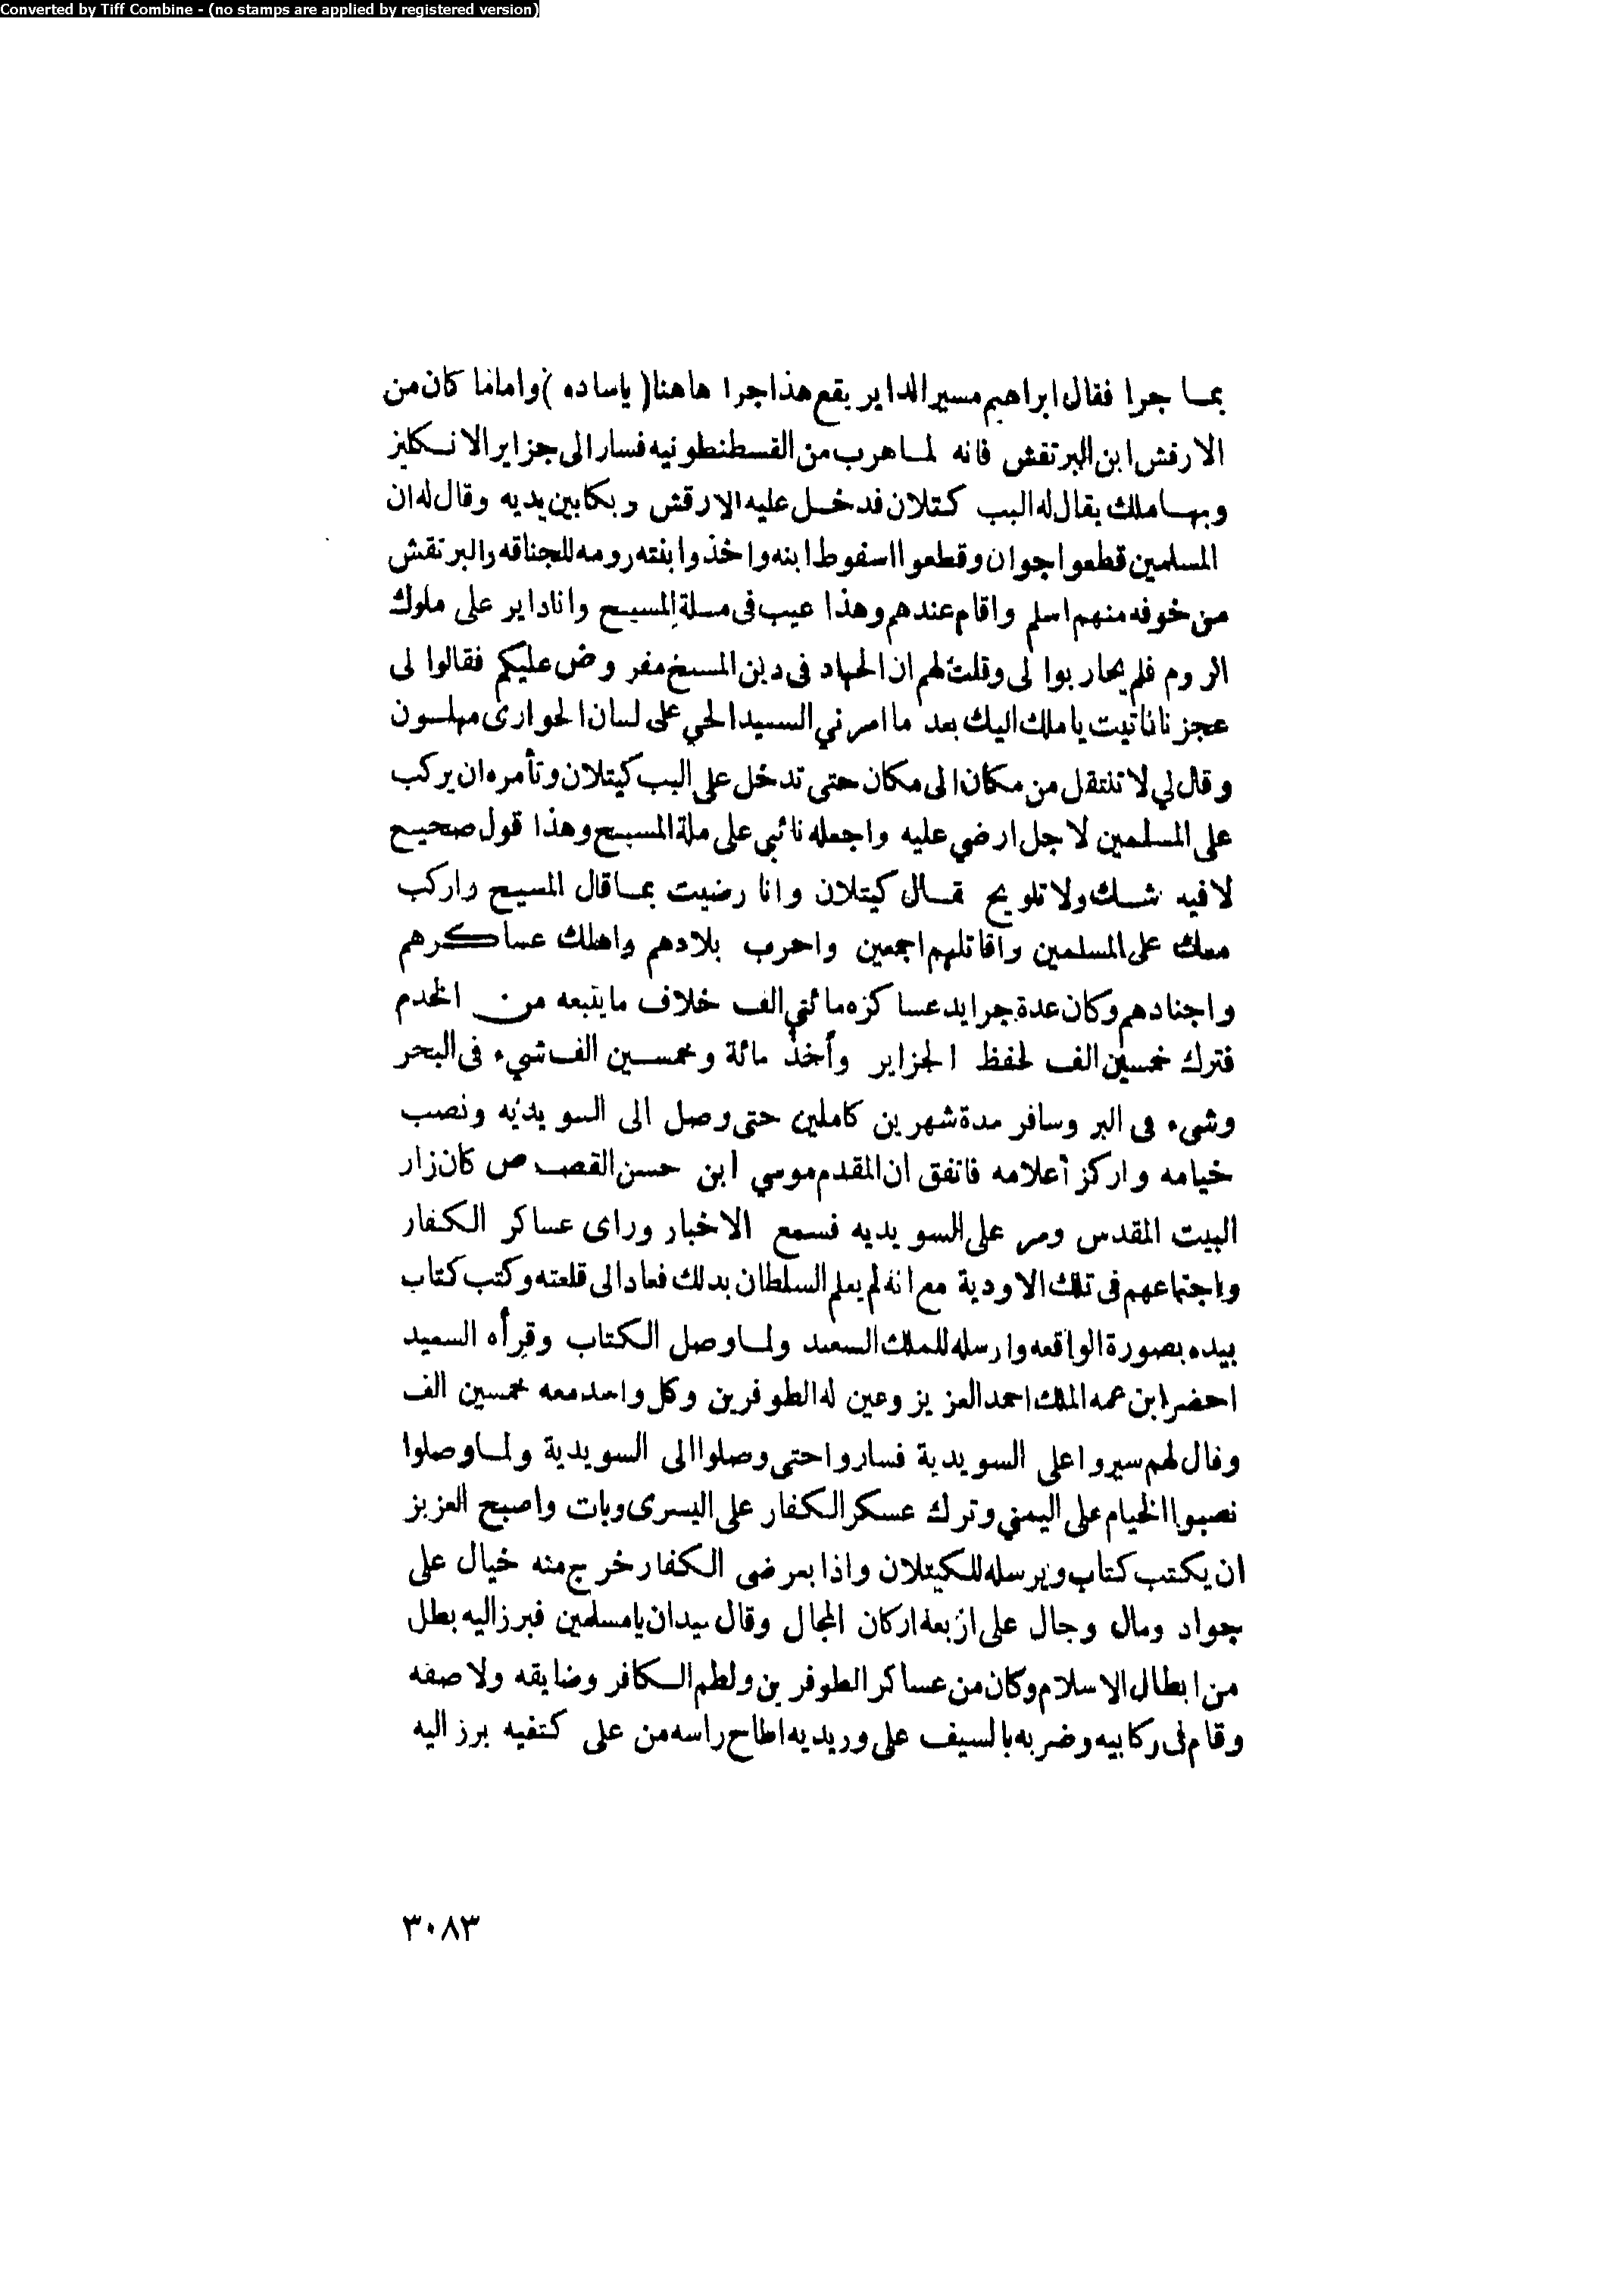 Converted by Tiff Combine - (no stamps are applied by registered version)
بمـا جرا فقال ابراهيم مسير الداير يقع هذا جرا هاهنا ( ياساده ) واما ما كان من
الارفش ابن البرتقش فانه لمـا هرب من القسطنطونيه فسار الى جزاير الانـكليز
وبهـا ملك يقال له البب كـتلان فدخـل عليه الارقش وبكا بين يديه وقال له ان
المسلمين قطعوا جوان وقطعوا اسفوط ابنه واخذوا بنته رومه للجناقه والبرتقش
من خوفه منهم اسلم واقام عندهم وهذا عيب فى مـلة المسيـح وانا داير على ملوك
الروم فلم يحاربوا لى وقلت لهم ان الجهاد فى دين المسيخ مفروض عليكم فقالوا لى
عجزنا فاتيت يا ملك اليك بعد ما امرني السيد الحي على لسان الحوارى مهلسون
وقال لي لا تنتقل من مكان الى مكان حتى تدخل على البب كيتلان وتأمره ان يركب
على المسلمين لاجل ارضي عليه واجعله نائبي على ملة المسيح وهذا قول صحيـح
لا فيه شـك ولا تلويح قـال كيتلان وانا رضيت بمـا قال المسيح واركب
معك على المسلمين واقاتلهم اجمعين واحرب بلادهم واهلك عساكـرهم
واجنادهم وكان عدة جرايد عساكره مائتي الف خلاف ما يتبعه من الخدم
فترك خمسين الف لحفظ الجزاير وأخذ مائة وخمسـين الف شيء فى البحر
وشىء فى البر وسافر مدة شهرين كاملين حتى وصل الى السويديه ونصب
خيامه واركز أعلامه فاتفق ان المقدم موسي ابن حسن القصـاص كان زار
البيت المقدس ومر على السويديه فسمع الاخبار وراى عساكر الكفار
واجتماعهم فى تلك الاودية مع انه لم يعلم السلطان بدلك فعاد الى قلعته وكتب كتاب
بيده بصورة الواقعه وارسله للملك السعيد ولمـا وصل الكتاب وقرأه السعيد
احضر ابن عمه الملك احمد العزيز وعين له الطوفرين وكل واحد معه خمسين الف
وقال لهم سيروا على السويدية فساروا حتى وصلوا الى السويدية ولمـا وصلوا
نصبوا الخيام على اليمني وترك عسكر الكفار على اليسرى وبات واصبح العزيز
ان يكتب كتاب ويرسله للكيتلان واذا بعرضى الكفار خرج منه خيال على
جواد ومال وجال على اربعة اركان المجال وقال ميدان يا مسلمين فبرز اليه بطل
من ابطال الاسلام وكان من عساكر الطوفرين ولطم الـكافر وضايقه ولاصقه
وقام فى ركابيه وضربه بالسيف على وريديه اطاح راسه من على كتفيه برز اليه
٣٠٨٣